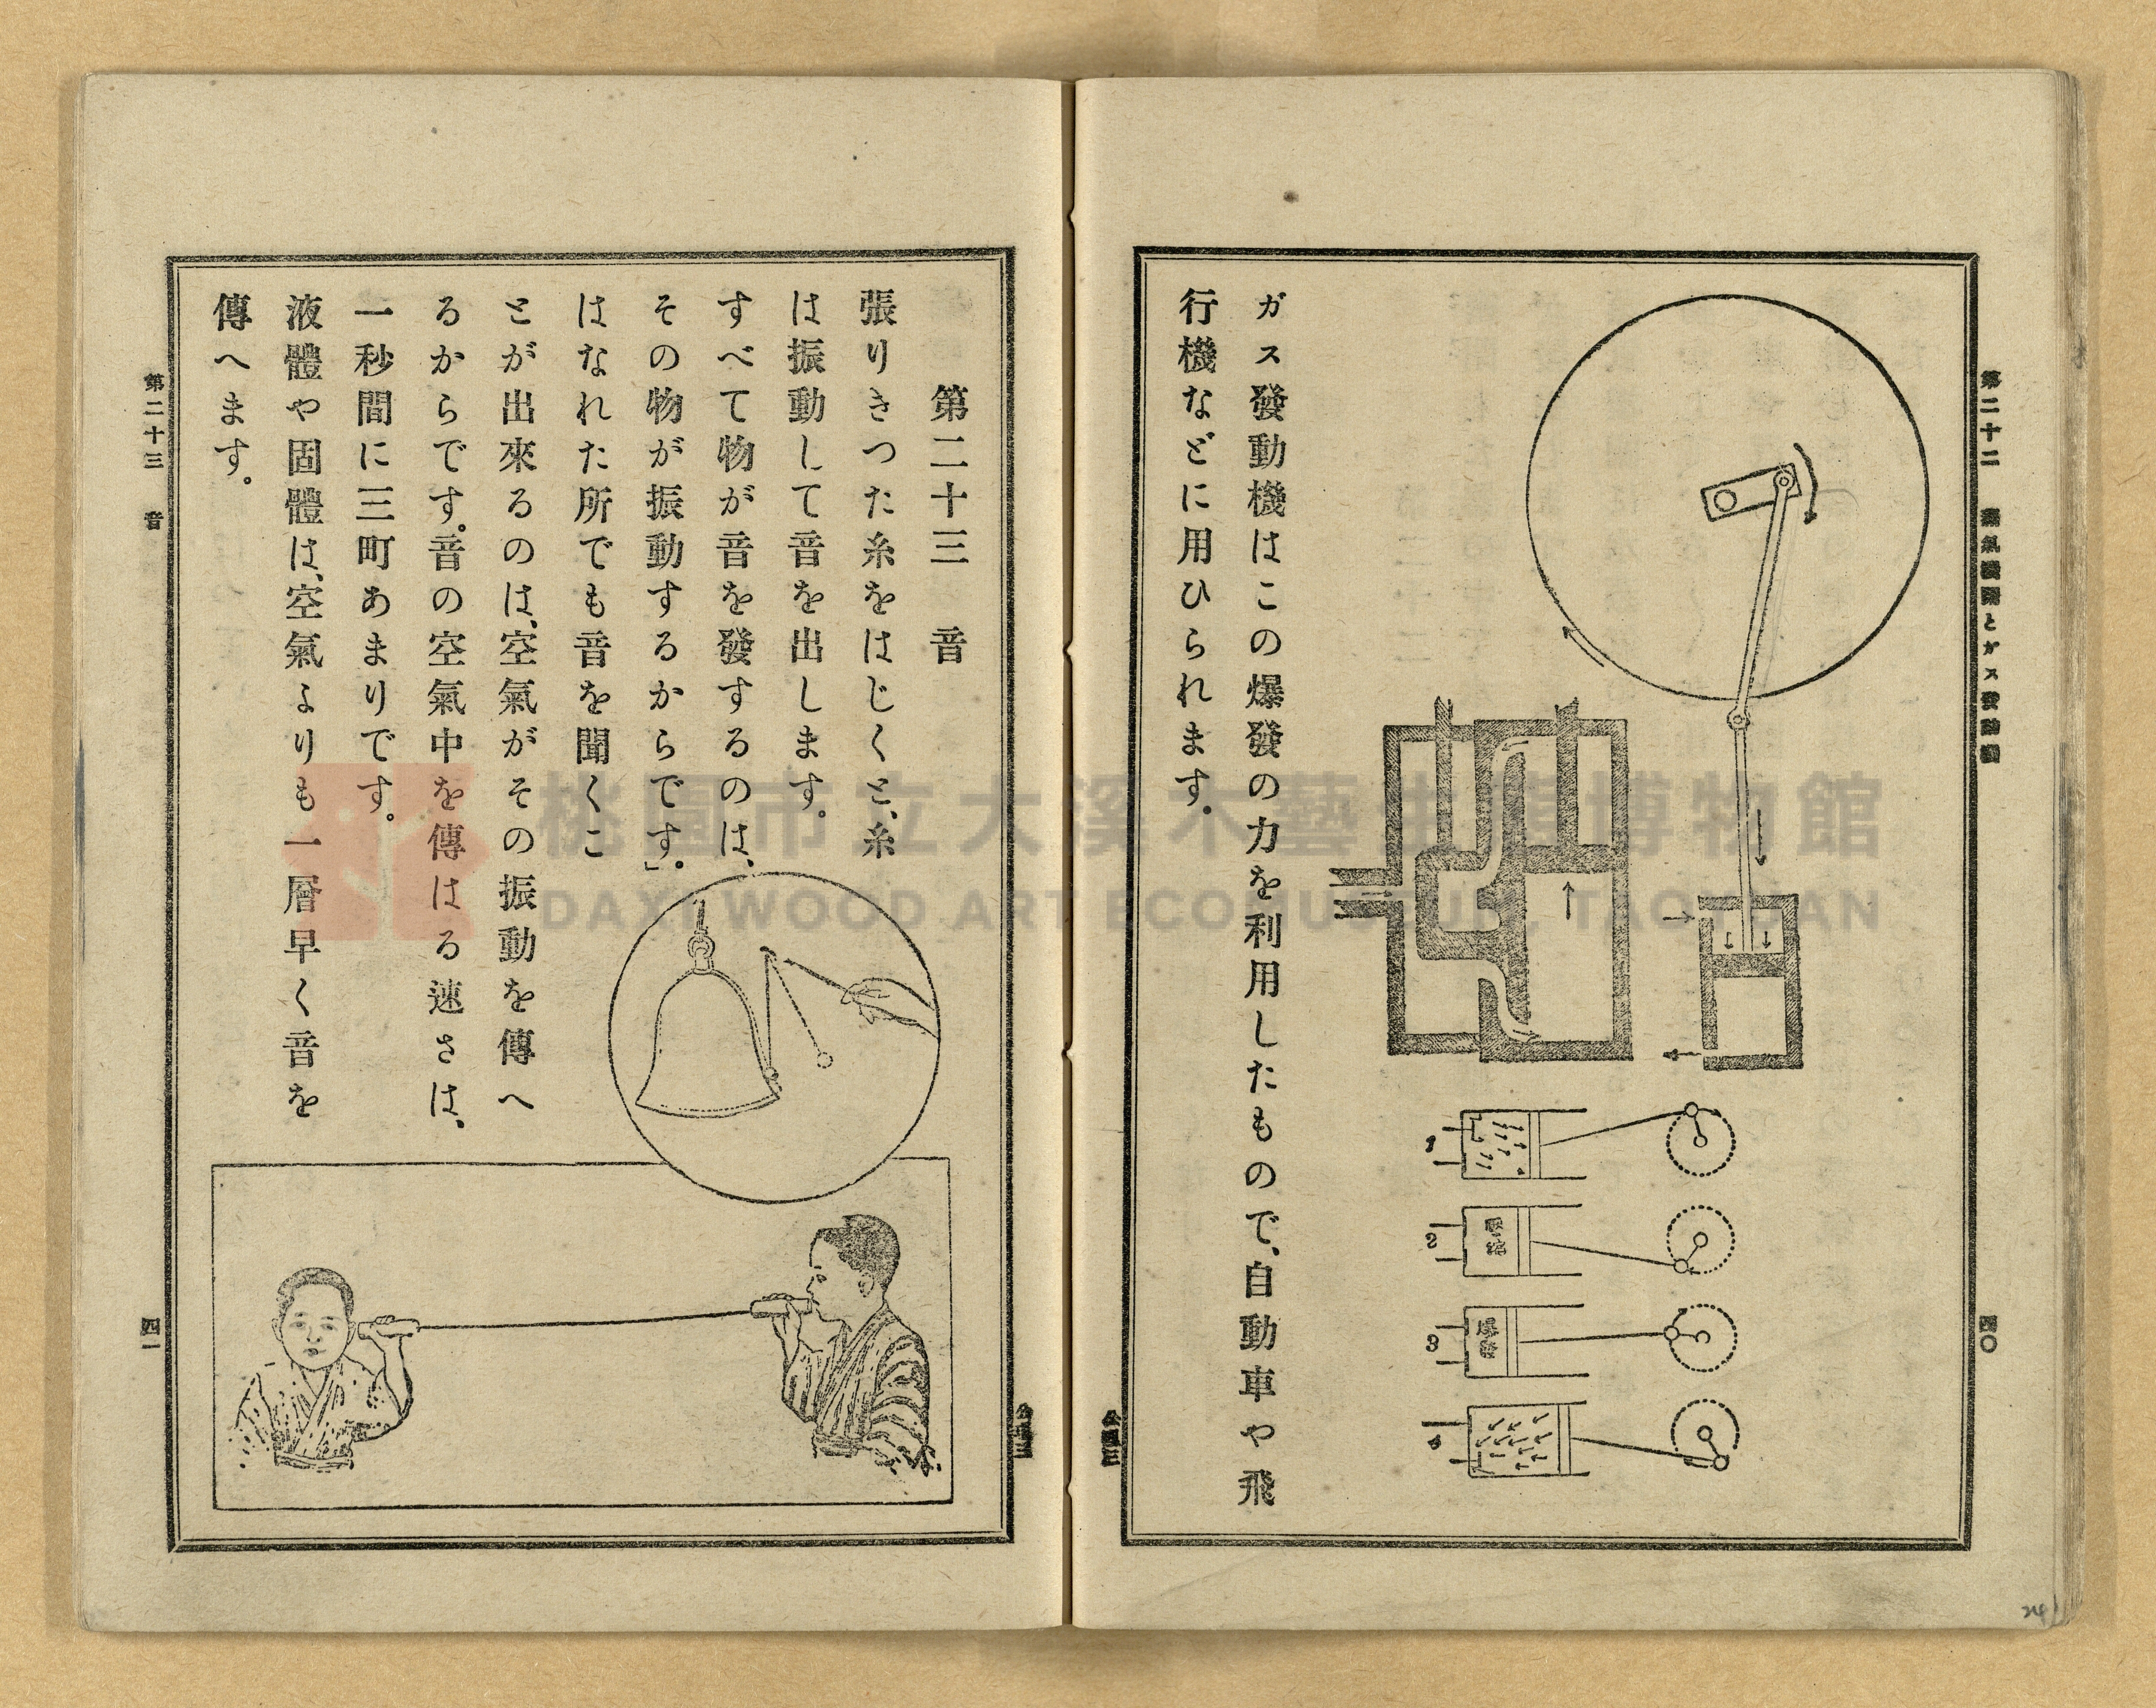 第二十二 蒸氣機關とガス發動機
四〇
1
2
3
4
ガス發動機はこの爆發の力を利用したもので、自動車や飛
行機などに用ひられます。
第二十三 音
張りきつた糸をはじくと、糸
は振動して音を出します。
すべて物が音を發するのは、
その物が振動するからです」。
はなれた所でも音を聞くこ
とが出來るのは、空氣がその振動を傳へ
るからです。音の空氣中を傳はる速さは、
一秒間に三町あまりです。
液體や固體は、空氣よりも一層早く音を
傳へます。
第二十三 音
四一
桃園市立大溪木藝生態博物館
DAXI WOOD ART ECOMUSEUM, TAOYUAN
24